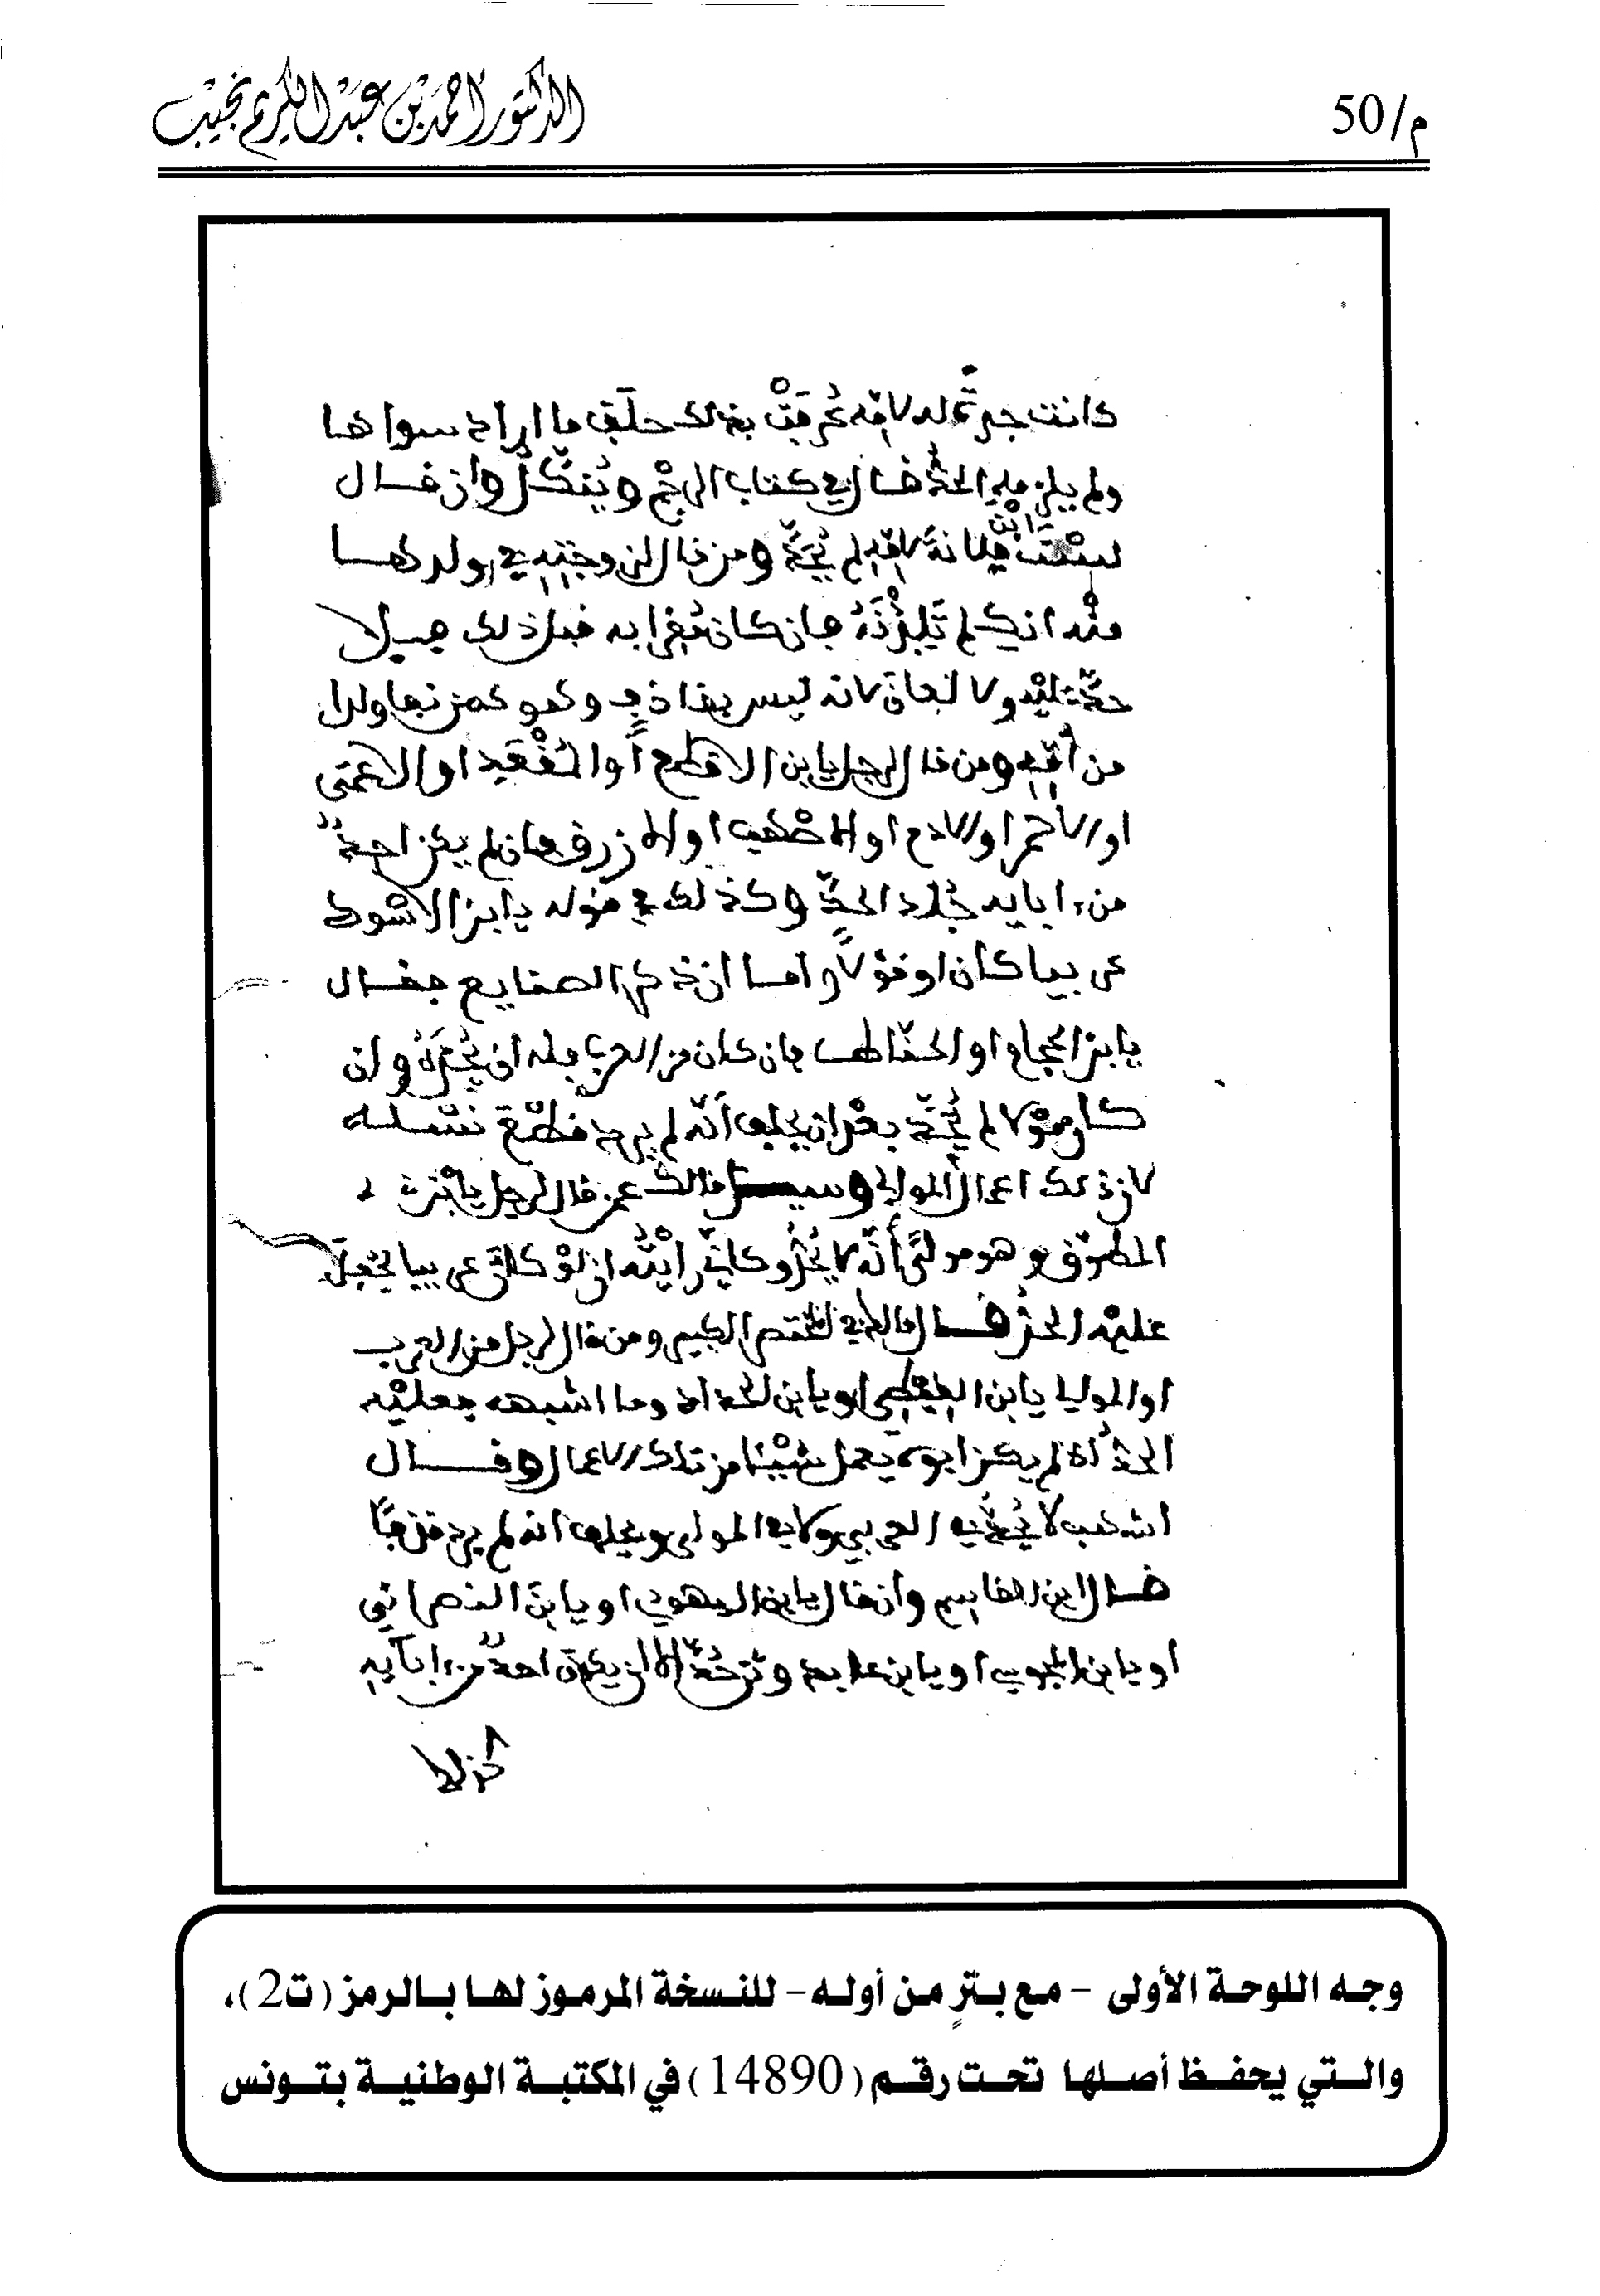 م/50
الدكتور أحمد بن عبد الكريم نجيب
كانت جدة له لأمه عرفت بذلك حلف ما اراد سواها
ولم يلزمه الحد قال في كتاب الرجم وينكل وان قال
لست ابن فلانة لامه لم يحد ومن قال لزوجته في ولدها
منه انك لم تلده فان كان مقرا به قبل ذلك فلا
حد عليه ولا لعان لانه ليس بقاذف وهو كمن نفا ولدا
من أمه ومن قال لرجل يا بن الاقطع أو المقعد او الاعمى
او الاحمر او الادم او الاصهب او الازرق فان لم يكن احد
من ءابايه جلد الحد وكذلك في قوله يا بن الاسود
عربيا كان او مولا واما ان ذكر الصنايع فقال
يا بن الحجام او الخياط فان كان من العرب فله ان يحده وان
كان مولا لم يحد بعد ان يحلف أنه لم يرد قطع نسله
لان ذلك اعمال الموالي وسيل مالك عمن قال لرجل يا بن
المطوق وهو مولى أنه لا يحد وكاني رأيته ان لو كان عربيا لجعل
عليه الحد قال مالك في المختصر الكبير ومن قال لرجل من العرب
او الموالي يا بن او يا بن الحداد وما اشبهه فعليه
الحد ان لم يكن ابوه يعمل شيئا من تلك الاعمال وقال
اشهب لا يحد في العربي ولا في المولى ويحلف انه لم يرد قذفا
قال ابن القاسم وان قال يا بن اليهودي او يا بن النصراني
او يا بن المجوسي او يا بن عابد وثن حد الا ان يكون احد من ءابآيه
كذلك
وجه اللوحة الأولى – مع بترٍ من أوله – للنسخة المرموز لها بالرمز (ت2)،
والتي يحفظ أصلها تحت رقم (14890) في المكتبة الوطنية بتونس